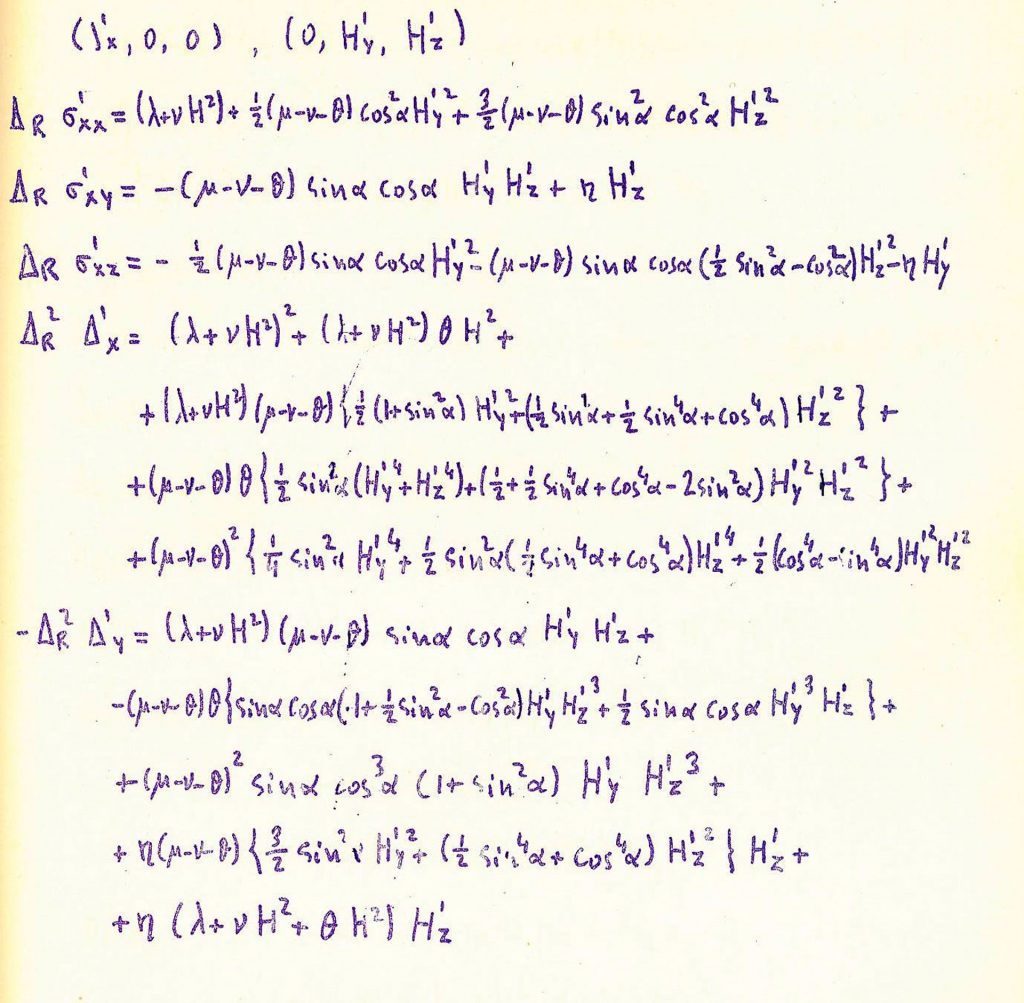 (J'x, 0, 0) , (0, H'y, H'z)
Δ_R σ'xx = (λ+νH²) + ½(μ-ν-θ) cos²α H'y² + 3/2(μ-ν-θ) sin²α cos²α H'z²
Δ_R σ'xy = -(μ-ν-θ) sinα cosα H'y H'z + η H'z
Δ_R σ'xz = - ½(μ-ν-θ) sinα cosα H'y² - (μ-ν-θ) sinα cosα (½ sin²α - cos²α) H'z² - η H'y
Δ_R² Δ'x = (λ+νH²)² + (λ+νH²) θ H² +
+ (λ+νH²)(μ-ν-θ) {½(1+sin²α) H'y² + (½ sin²α + ½ sin⁴α + cos⁴α) H'z²} +
+ (μ-ν-θ) θ {½ sin²α (H'y⁴ + H'z⁴) + (½ + ½ sin⁴α + cos⁴α - 2sin²α) H'y² H'z²} +
+ (μ-ν-θ)² {¼ sin²α H'y⁴ + ½ sin²α (½ sin⁴α + cos⁴α) H'z⁴ + ½ (cos⁴α - sin⁴α) H'y² H'z²
- Δ_R² Δ'y = (λ+νH²)(μ-ν-θ) sinα cosα H'y H'z +
-(μ-ν-θ) θ {sinα cosα (-1 + ½ sin²α - cos²α) H'y H'z³ + ½ sinα cosα H'y³ H'z} +
+ (μ-ν-θ)² sinα cos³α (1+ sin²α) H'y H'z³ +
+ η(μ-ν-θ) {3/2 sin²α H'y² + (½ sin⁴α + cos⁴α) H'z²} H'z +
+ η (λ+νH² + θ H²) H'z